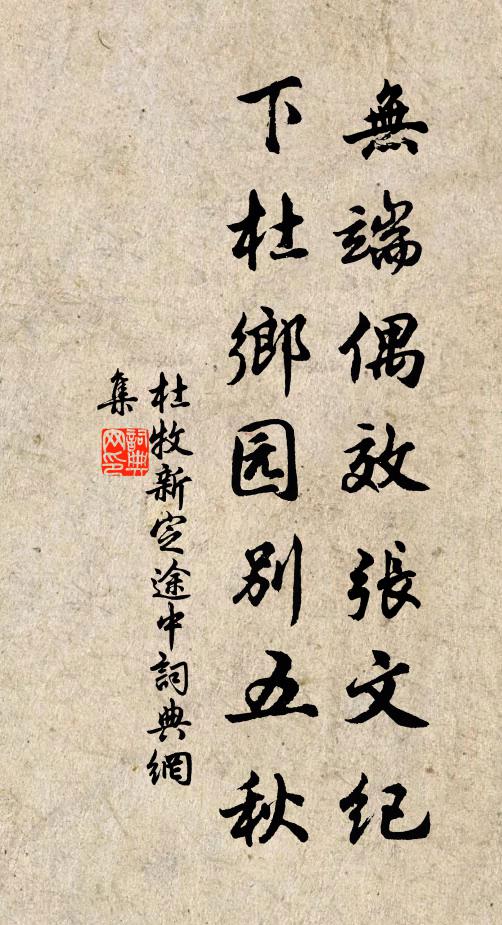 無端偶效張文纪
下杜鄉园别五秋
杜牧新定途中詞典網
集
詞典网印